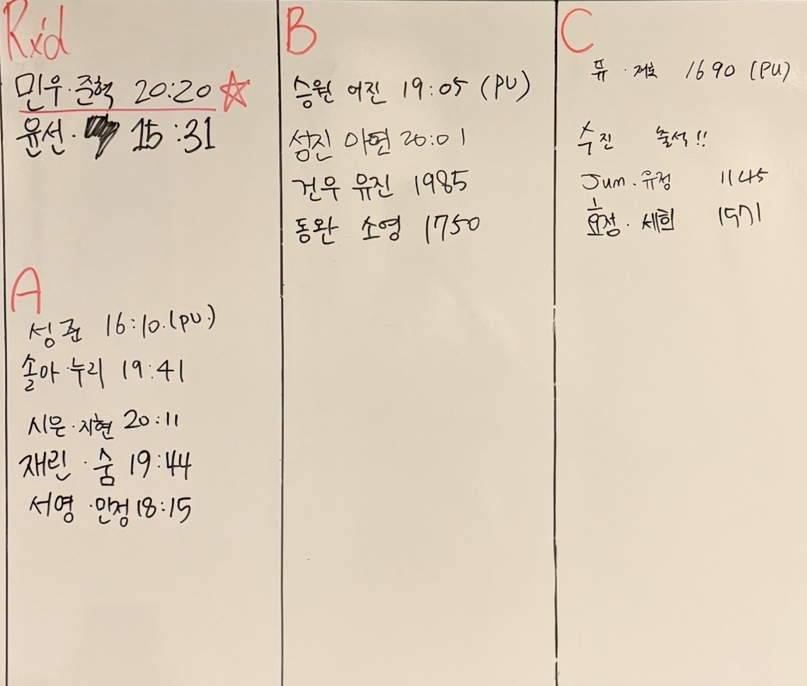 Rx'd
민우·준혁 20:20
윤선· 15:31
A
성준 16:10.(PU.)
솔아·누리 19:41
시은·지현 20:11
재린·숨 19:44
서영·민정 18:15
B
승원 어진 19:05 (PU)
성진 아현 20:01
건우 유진 1985
동완 소영 1750
C
뮤· 1690 (PU)
수진 출석!!
Jum·유정 1145
효정·세희 1571